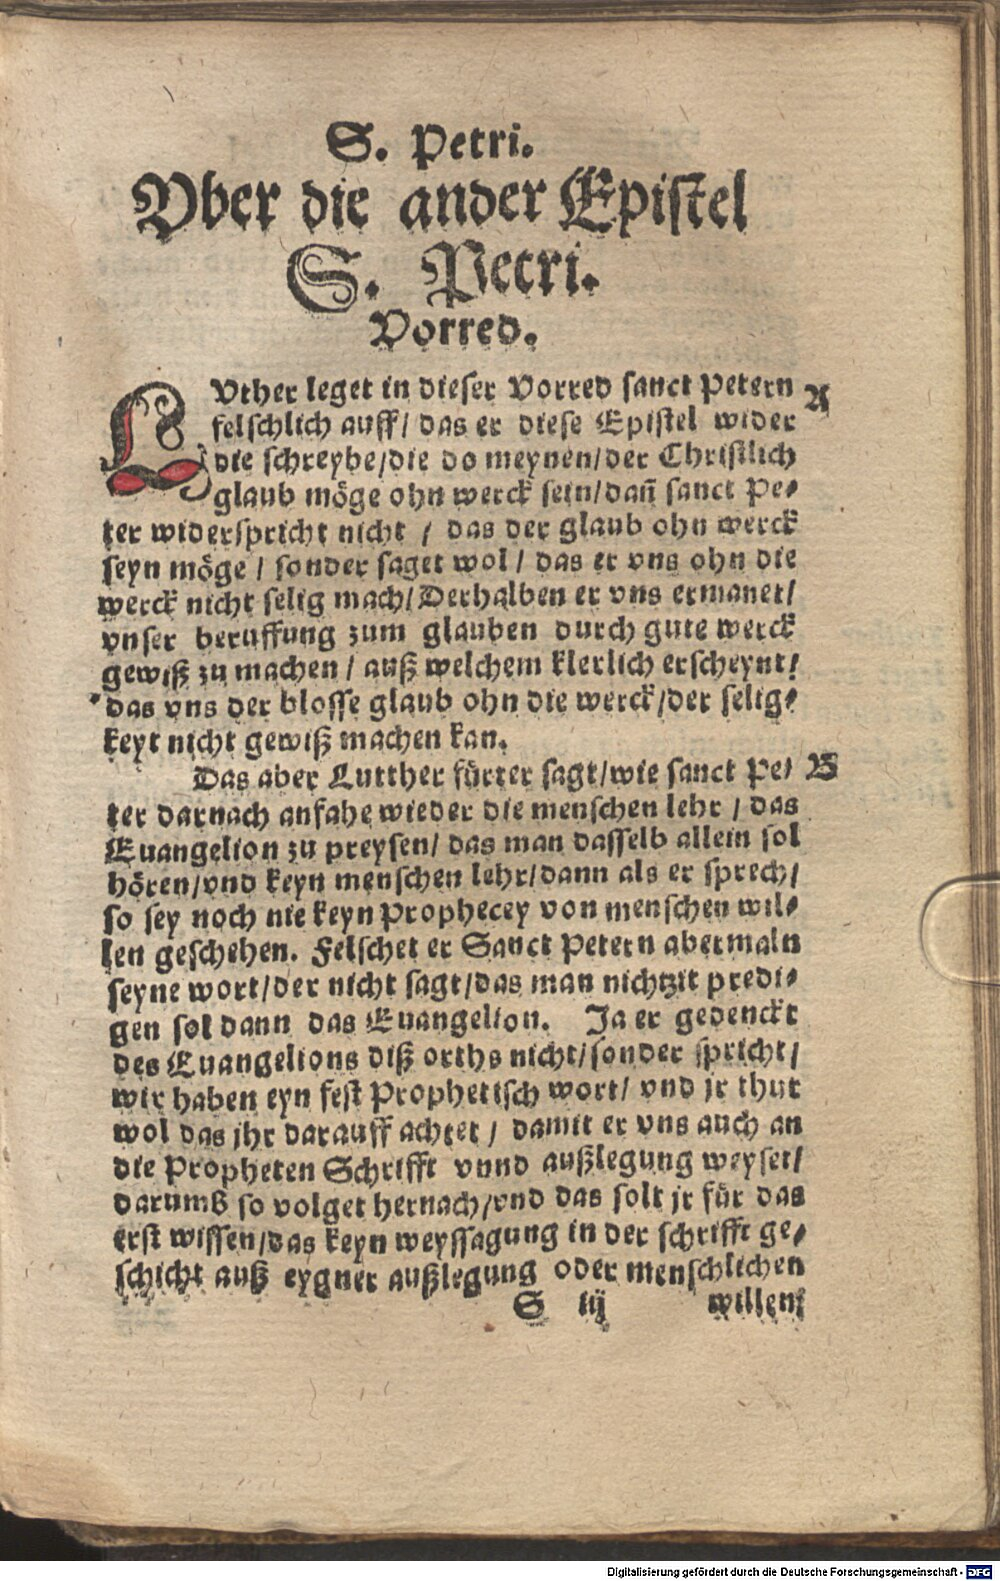 S. Petri.
Vber die ander Epistel
S. Petri.
Vorred.
LVther leget in dieser Vorred sanct Petern A
felschlich auff/ das er diese Epistel wider
die schreybe/die do meynen/der Christlich
glaub möge ohn werck sein/dañ sanct Pe⸗
ter widerspricht nicht / das der glaub ohn werck
seyn möge / sonder saget wol / das er vns ohn die
werck nicht selig mach/Derhalben er vns ermanet/
vnser beruffung zum glauben durch gute werck
gewiß zu machen / auß welchem klerlich erscheynt/
das vns der blosse glaub ohn die werck/der selig⸗
keyt nicht gewiß machen kan.
Das aber Lutther fürter sagt/wie sanct Pe⸗ B
ter darnach anfahe wieder die menschen lehr / das
Euangelion zu preysen/ das man dasselb allein sol
hören/vnd keyn menschen lehr/dann als er sprech/
so sey noch nie keyn Prophecey von menschen wil⸗
len geschehen. Felschet er Sanct Petern abermaln
seyne wort/der nicht sagt/das man nichtzit predi⸗
gen sol dann das Euangelion. Ja er gedenckt
des Euangelions diß orths nicht/sonder spricht/
wir haben eyn fest Prophetisch wort/ vnd jr thut
wol das jhr darauff achtet / damit er vns auch an
die Propheten Schrifft vnnd außlegung weyset/
darumb so volget hernach/vnd das solt jr für das
erst wissen/das keyn weyssagung in der schrifft ge⸗
schicht auß eygner außlegung oder menschlichen
S iij willen/
Digitalisierung gefördert durch die Deutsche Forschungsgemeinschaft - DFG